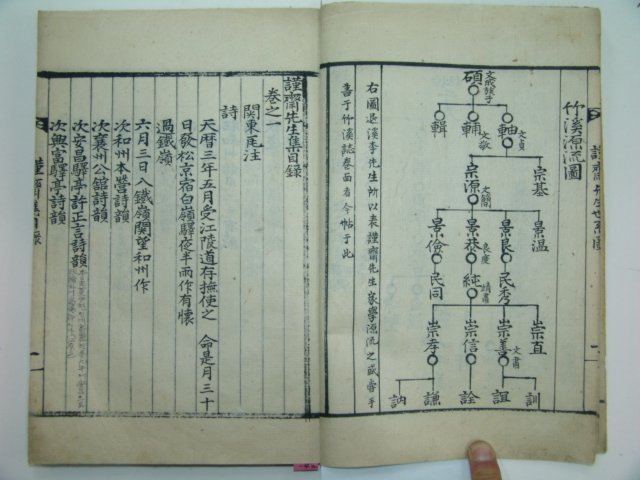 竹溪源流圖
碩 文成猴子
軸 文貞
輔 文敬
輯
宗基
宗源 文簡
景温
景良
景恭 良度
景儉
民秀
純 靖肅
民同
崇直
崇善 文肅
崇信
崇孝
訓
誼
詮
謙
訥
右圖退溪李先生所以表謹齋先生家學源流之盛嘗手
書于竹溪誌卷面者今帖于此
謹齋先生集目錄
卷之一
關東瓦注
詩
天曆三年五月受江陵道存撫使之命是月三十
日發松京宿白嶺驛夜半雨作有懷
過鐵嶺
六月三日入鐵嶺關望和州作
次和州本營詩韻
次襄州公館詩韻
次安昌驛亭許正言詩韻
次興富驛亭詩韻